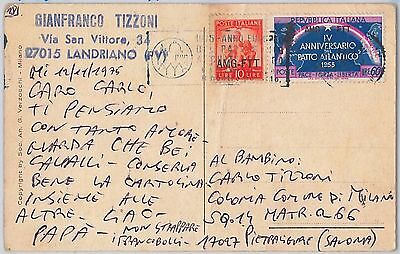 GIANFRANCO TIZZONI
Via San Vittore, 34
27015 LANDRIANO (PV)
POSTE ITALIANE
LIRE 10 LIRE
AMG-FTT
REPVBBLICA ITALIANA
AMG-FTT
IV
ANNIVERSARIO
"PATTO ATLANTICO"
1953
PACE-FORZA-LIBERTÀ
L. 60
CARO CARLO,
TI PENSIAMO
CON TANTO AMORE
GUARDA CHE BEI
CAVALLI - CONSERVA
BENE LA CARTOLINA
INSIEME ALLE
ALTRE - CIAO -
PAPÀ - NON STRAPPARE
FRANCOBOLLI -
AL BAMBINO:
CARLO TIZZONI
COLONIA COMUNE DI MILANO
SQ. 14 MATR. 266
17027 PIETRALIGURE (SAVONA)
Copyright by Soc. An. G. Verzocchi - Milano